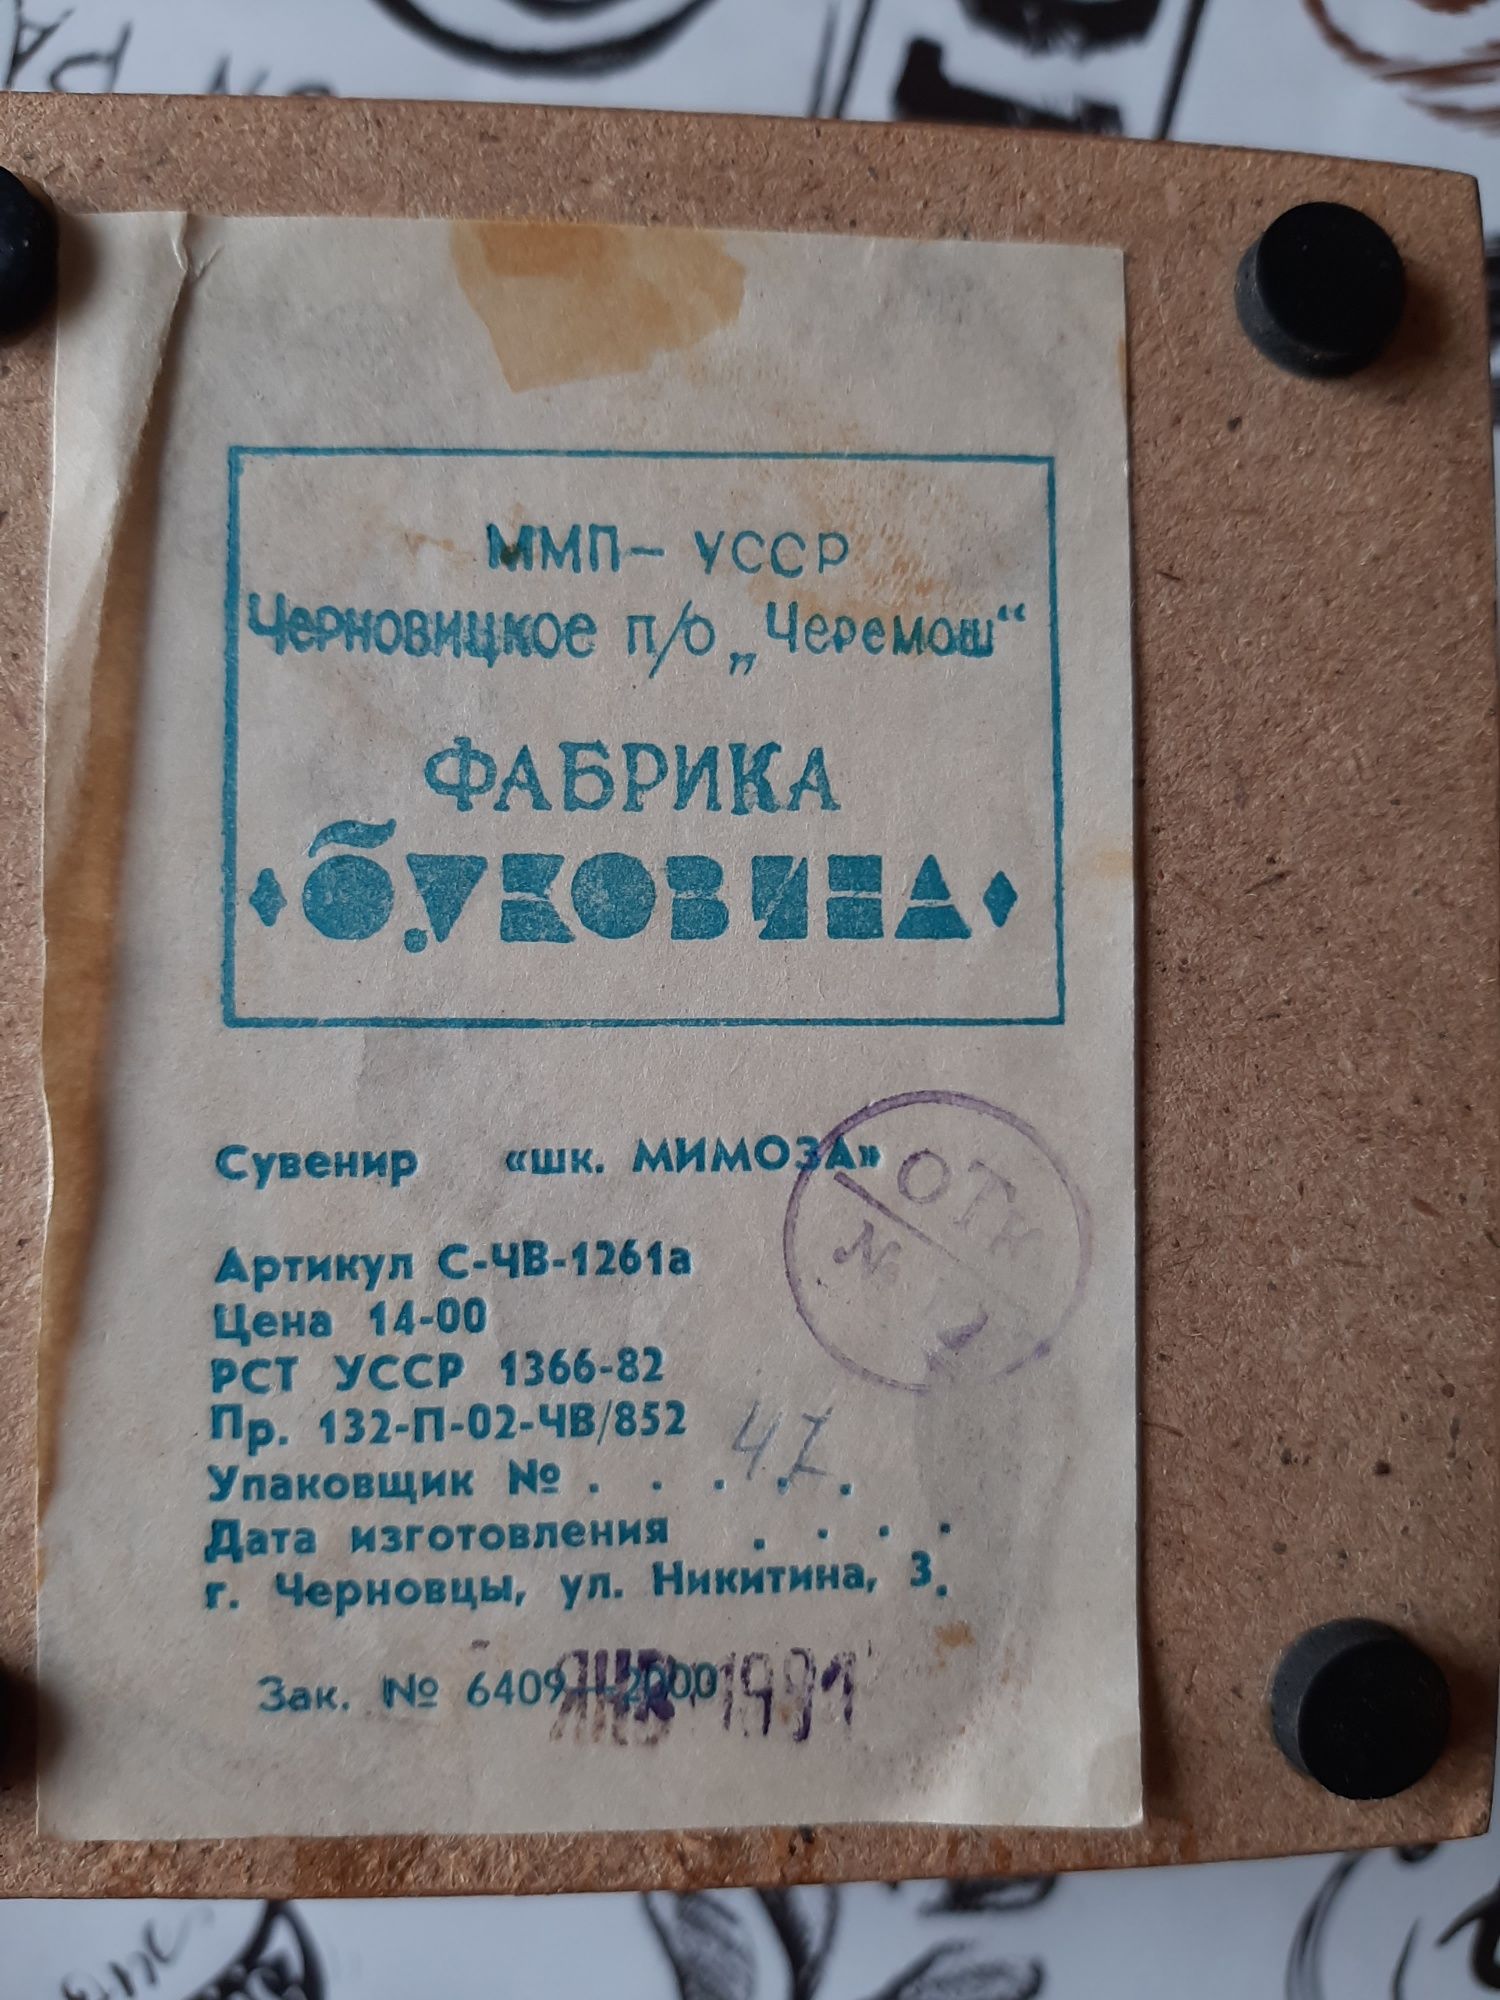 ММП – УССР
Черновицкое п/о „Черемош“
ФАБРИКА
БУКОВИНА
Сувенир «шк. МИМОЗА»
ОТК
№
Артикул С-ЧВ-1261а
Цена 14-00
РСТ УССР 1366-82
Пр. 132-П-02-ЧВ/852
47
Упаковщик № . . . . .
Дата изготовления . . . .
г. Черновцы, ул. Никитина, 3.
Зак. № 6409—2000
ЯНВ 1991